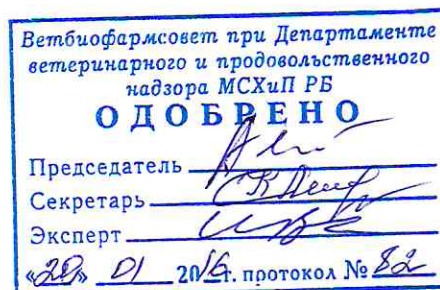 Ветбиофармсовет при Департаменте
ветеринарного и продовольственного
надзора МСХиП РБ
ОДОБРЕНО
Председатель
Секретарь
Эксперт
«20» 01 2016г. протокол № 82